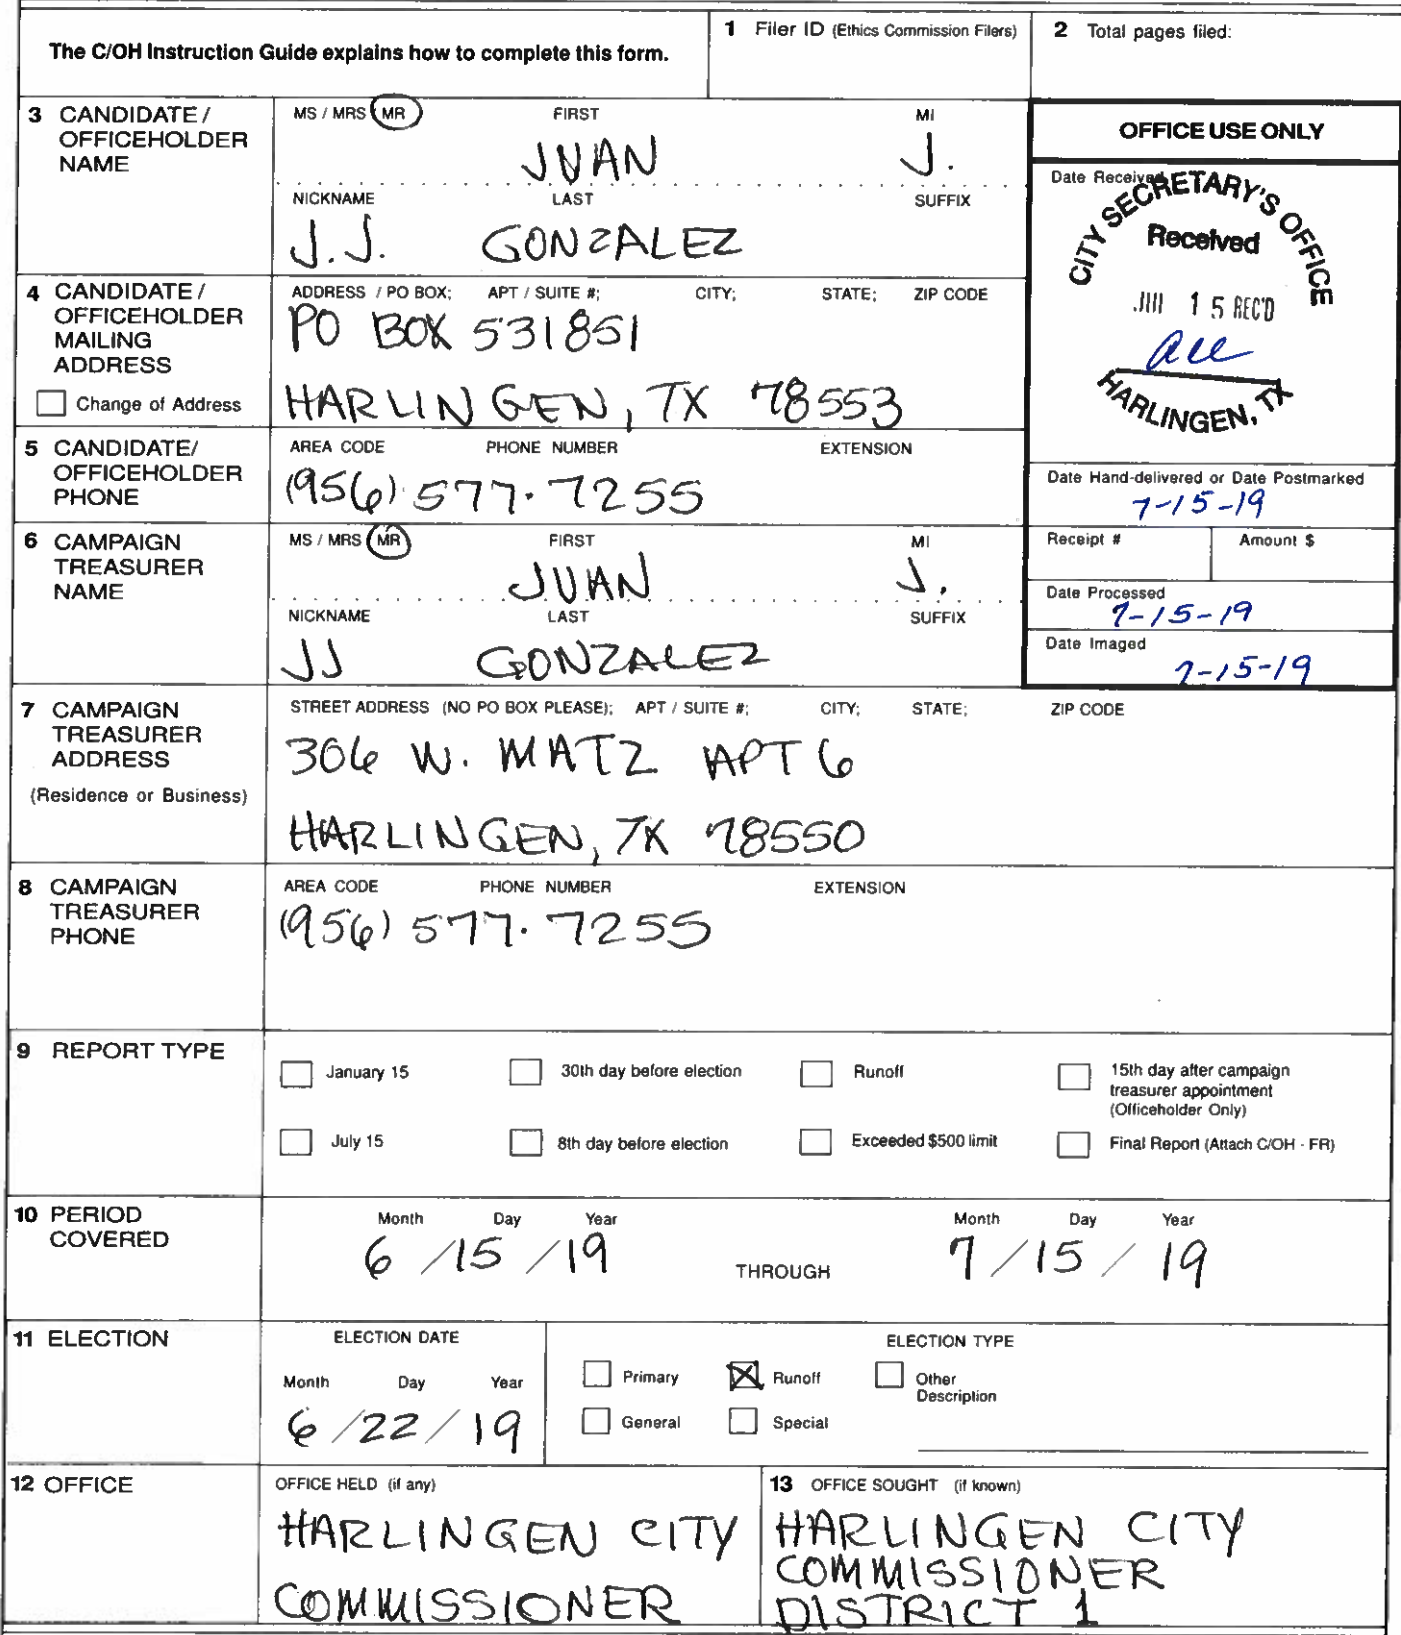 The C/OH Instruction Guide explains how to complete this form.
1 Filer ID (Ethics Commission Filers)
2 Total pages filed:
3 CANDIDATE / OFFICEHOLDER NAME
MS / MRS / MR FIRST MI
JUAN J.
NICKNAME LAST SUFFIX
J.J. GONZALEZ
OFFICE USE ONLY
Date Received
CITY SECRETARY'S OFFICE
Received
15 REC'D
HARLINGEN, TX
4 CANDIDATE / OFFICEHOLDER MAILING ADDRESS
Change of Address
ADDRESS / PO BOX; APT / SUITE #; CITY; STATE; ZIP CODE
PO BOX 531851
HARLINGEN, TX 78553
5 CANDIDATE/ OFFICEHOLDER PHONE
AREA CODE PHONE NUMBER EXTENSION
(956) 577-7255
Date Hand-delivered or Date Postmarked
7-15-19
6 CAMPAIGN TREASURER NAME
MS / MRS / MR FIRST MI
JUAN J.
NICKNAME LAST SUFFIX
JJ GONZALEZ
Receipt # Amount $
Date Processed
7-15-19
Date Imaged
7-15-19
7 CAMPAIGN TREASURER ADDRESS
(Residence or Business)
STREET ADDRESS (NO PO BOX PLEASE); APT / SUITE #; CITY; STATE; ZIP CODE
306 W. MATZ APT 6
HARLINGEN, TX 78550
8 CAMPAIGN TREASURER PHONE
AREA CODE PHONE NUMBER EXTENSION
(956) 577-7255
9 REPORT TYPE
January 15 30th day before election Runoff 15th day after campaign treasurer appointment (Officeholder Only)
July 15 8th day before election Exceeded $500 limit Final Report (Attach C/OH - FR)
10 PERIOD COVERED
Month Day Year Month Day Year
6 / 15 / 19 THROUGH 7 / 15 / 19
11 ELECTION
ELECTION DATE
Month Day Year
6 / 22 / 19
ELECTION TYPE
Primary Runoff Other Description
General Special
12 OFFICE
OFFICE HELD (if any)
HARLINGEN CITY
COMMISSIONER
13 OFFICE SOUGHT (if known)
HARLINGEN CITY
COMMISSIONER
DISTRICT 1